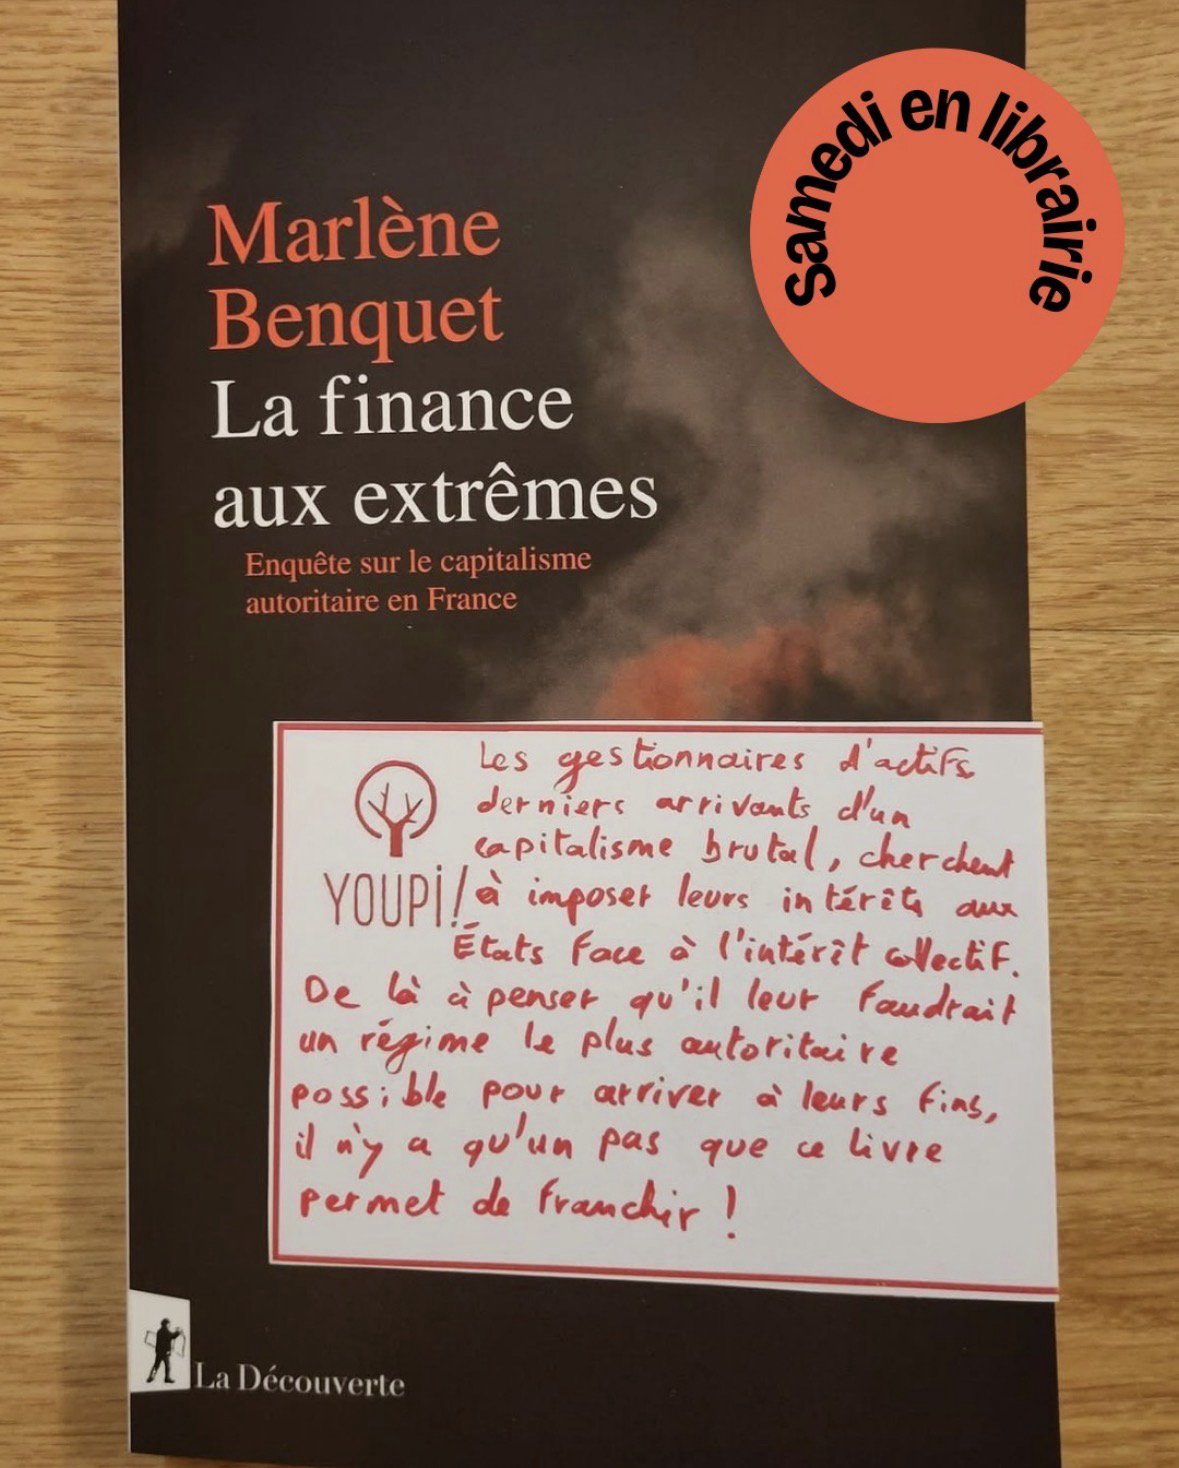 samedi en librairie
Marlène
Benquet
La finance
aux extrêmes
Enquête sur le capitalisme
autoritaire en France
YOUPI!
Les gestionnaires d'actifs
derniers arrivants d'un
capitalisme brutal, cherchent
à imposer leurs intérêts aux
États face à l'intérêt collectif.
De là à penser qu'il leur faudrait
un régime le plus autoritaire
possible pour arriver à leurs fins,
il n'y a qu'un pas que ce livre
permet de franchir !
La Découverte